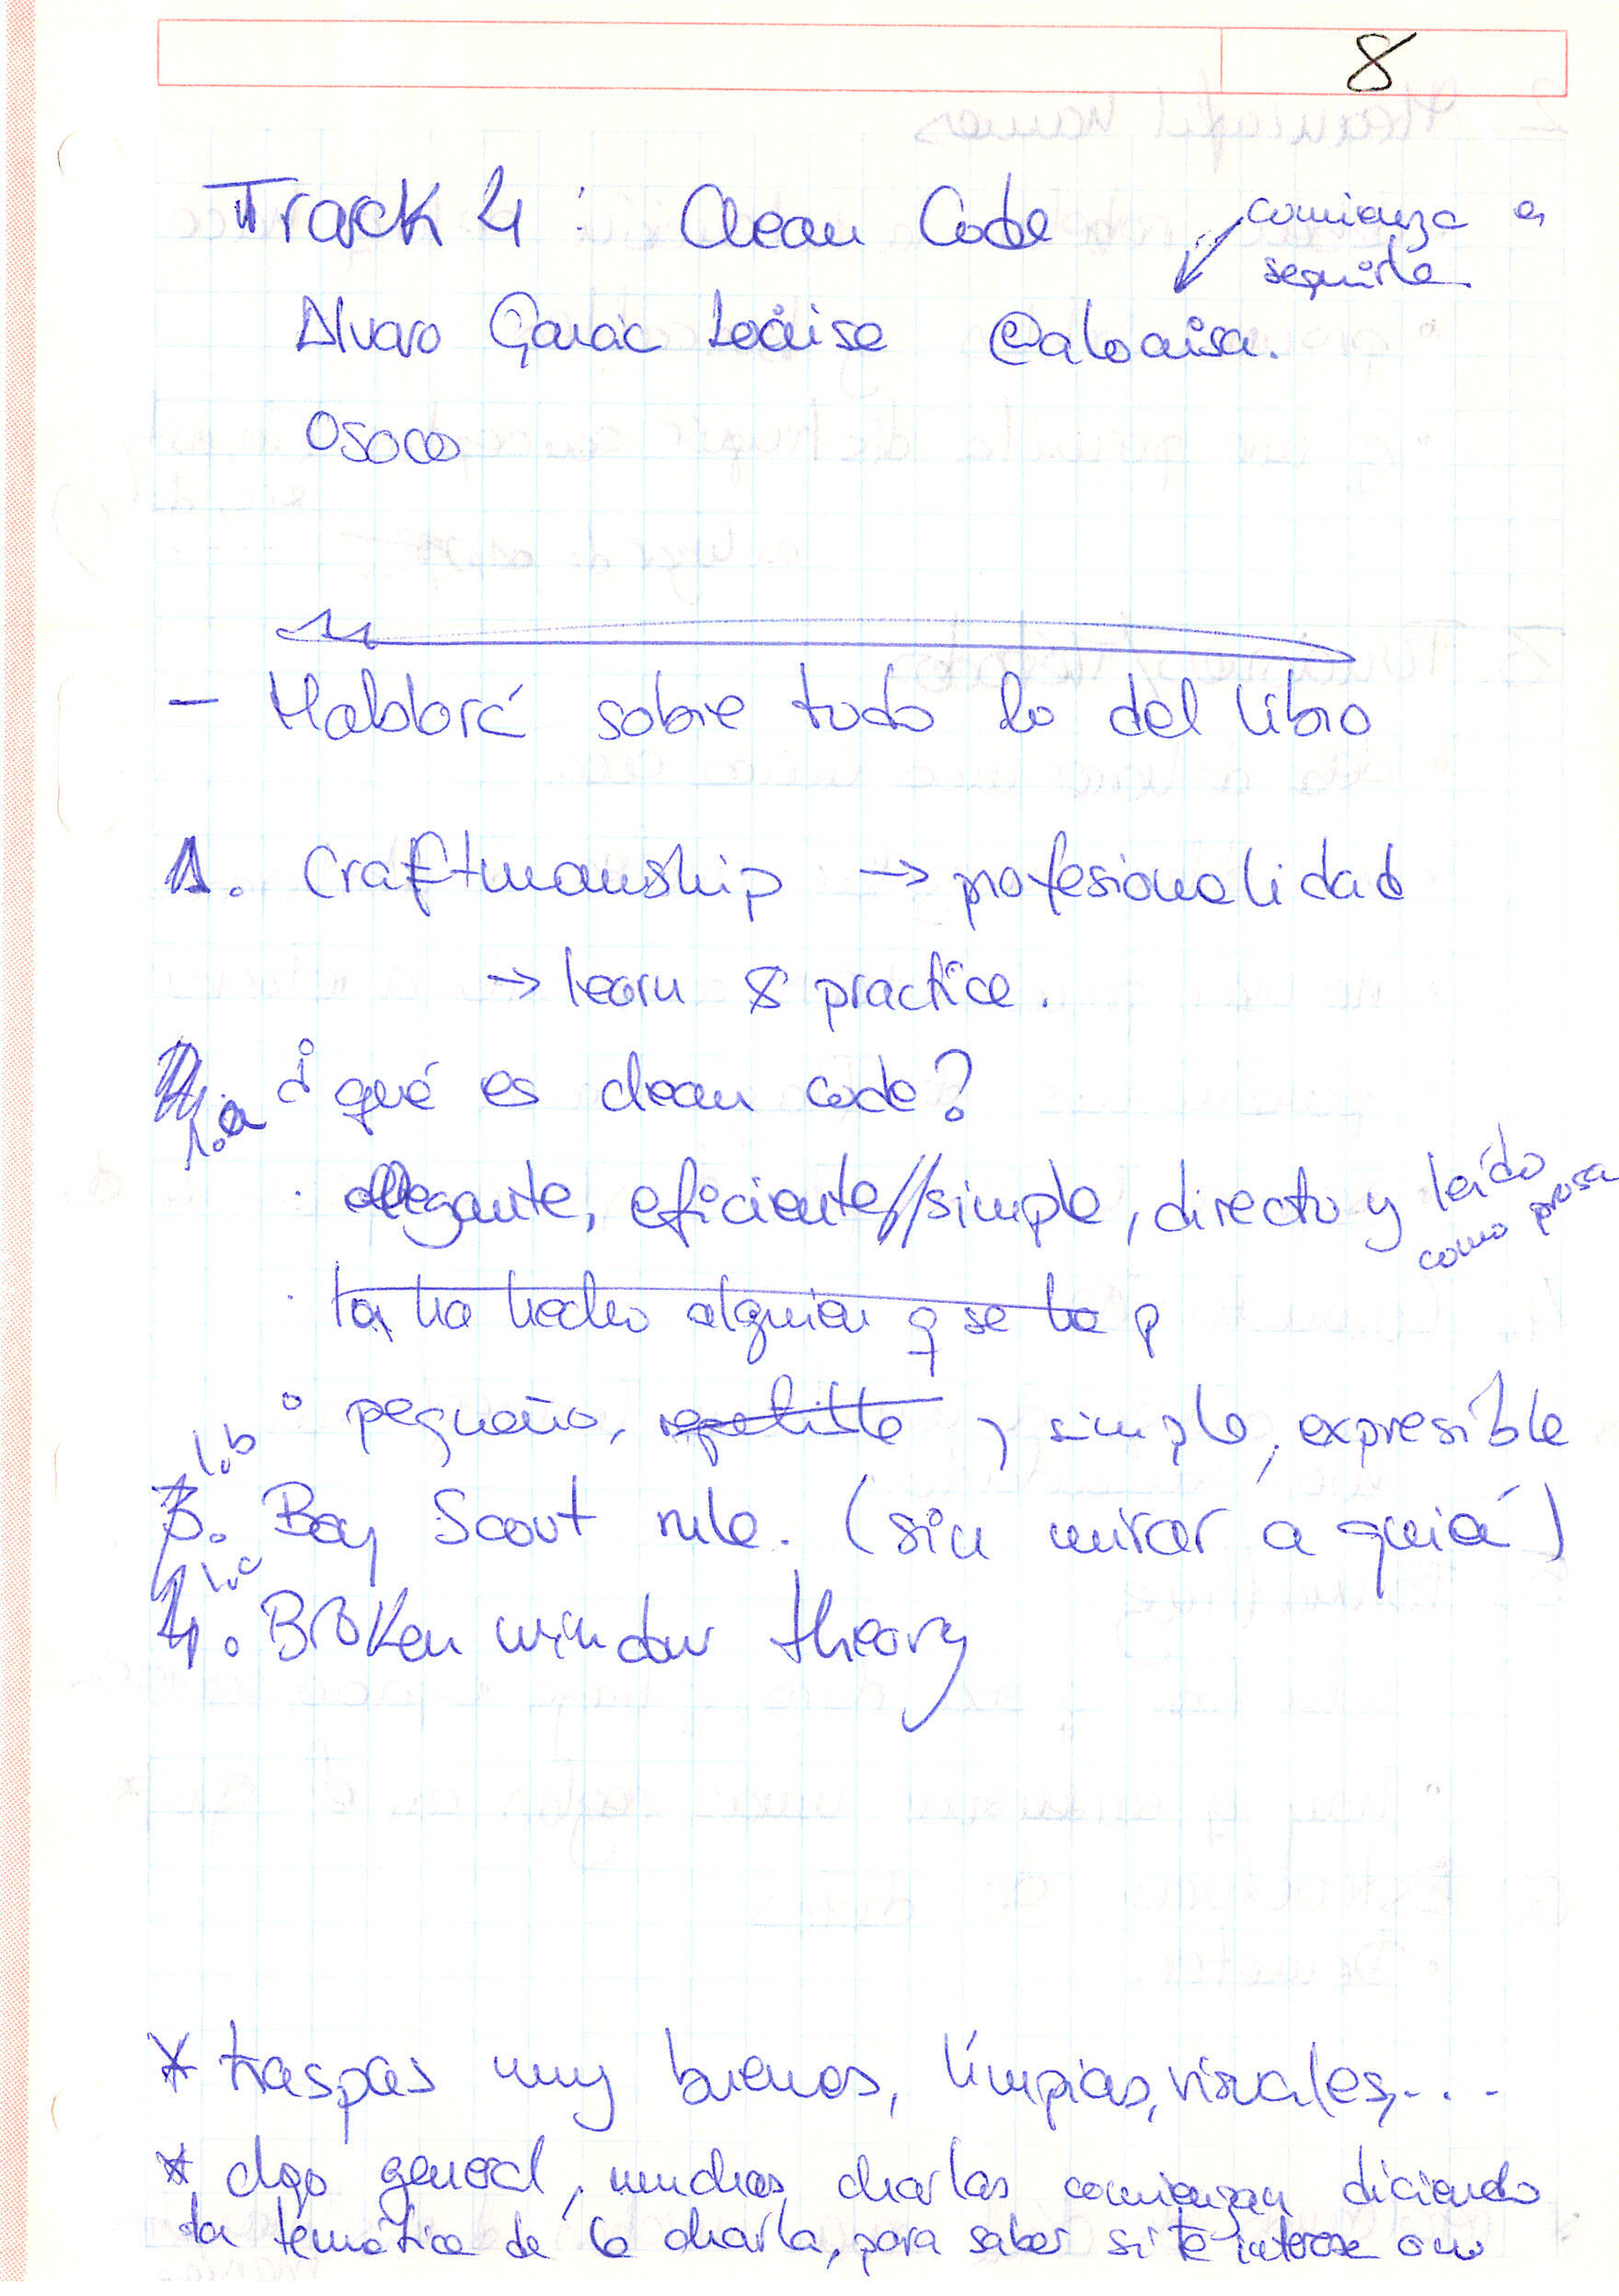 8
Track 4 : Clean Code
comienza a
seguirle
Alvaro García Loaisa @aloaisa.
Osoco
- Hablará sobre todo lo del libro
1. Craftmanship → profesionalidad
→ learn & practice.
1.a ¿qué es clean code?
· elegante, eficiente//simple, directo y leído
como prosa
· la ha hecho alguien q se ha p
° pequeño, repetible y simple, expresible
1.b
3. Boy Scout rule. (sin mirar a quién)
1.c
4. Broken window theory
* traspas muy buenas, límpias, visuales,...
* algo general, muchas charlas comienzan diciendo
la temática de la charla, para saber si te interesa o no